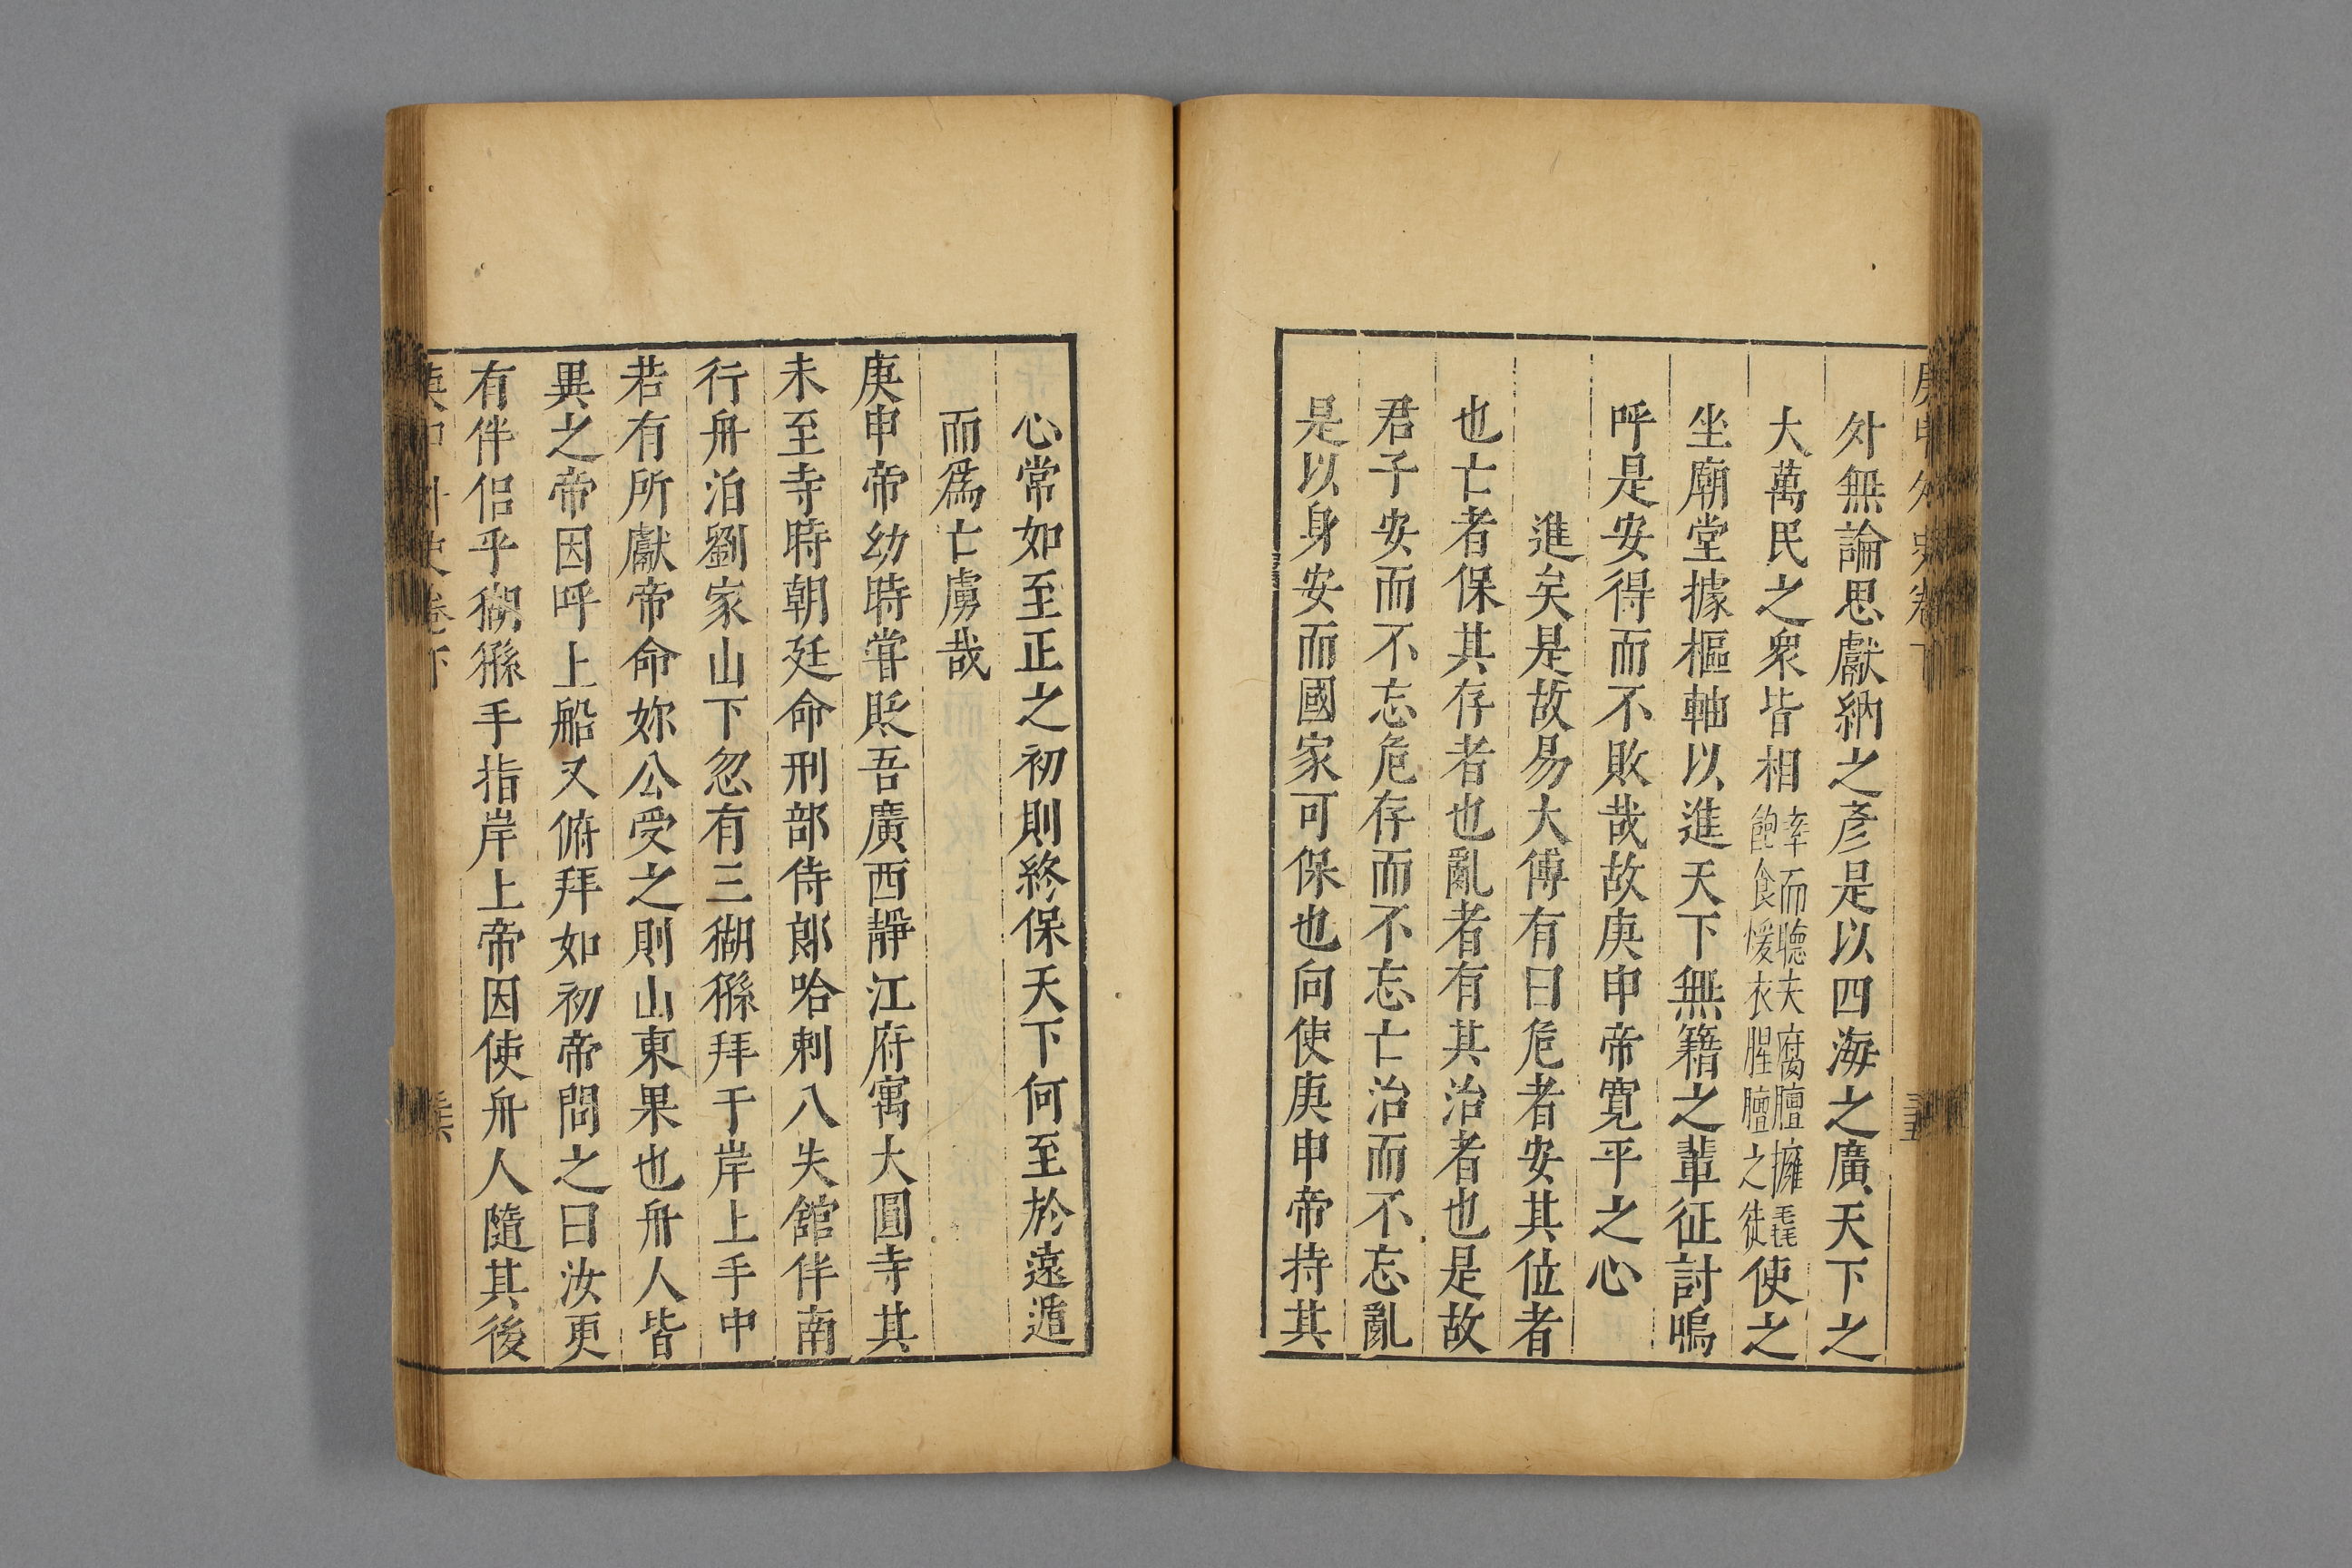 庚申外史卷下
外無論思獻納之彥是以四海之廣天下之
大萬民之衆皆相率而聽夫腐膻擁毳飽食煖衣腥膻之徒使之
坐廟堂據樞軸以進天下無籍之輩征討嗚
呼是安得而不敗哉故庚申帝寬平之心
進矣是故易大傅有曰危者安其位者
也亡者保其存者也亂者有其治者也是故
君子安而不忘危存而不忘亡治而不忘亂
是以身安而國家可保也向使庚申帝持其
心常如至正之初則終保天下何至於遠遁
而爲亡虜哉
庚申帝幼時嘗貶吾廣西靜江府寓大圓寺其
未至寺時朝廷命刑部侍郎哈剌八失館伴南
行舟泊劉家山下忽有三猢猻拜于岸上手中
若有所獻帝命妳公受之則山東果也舟人皆
異之帝因呼上船又俯拜如初帝問之曰汝更
有伴侣乎猢猻手指岸上帝因使舟人隨其後
庚申外史卷下